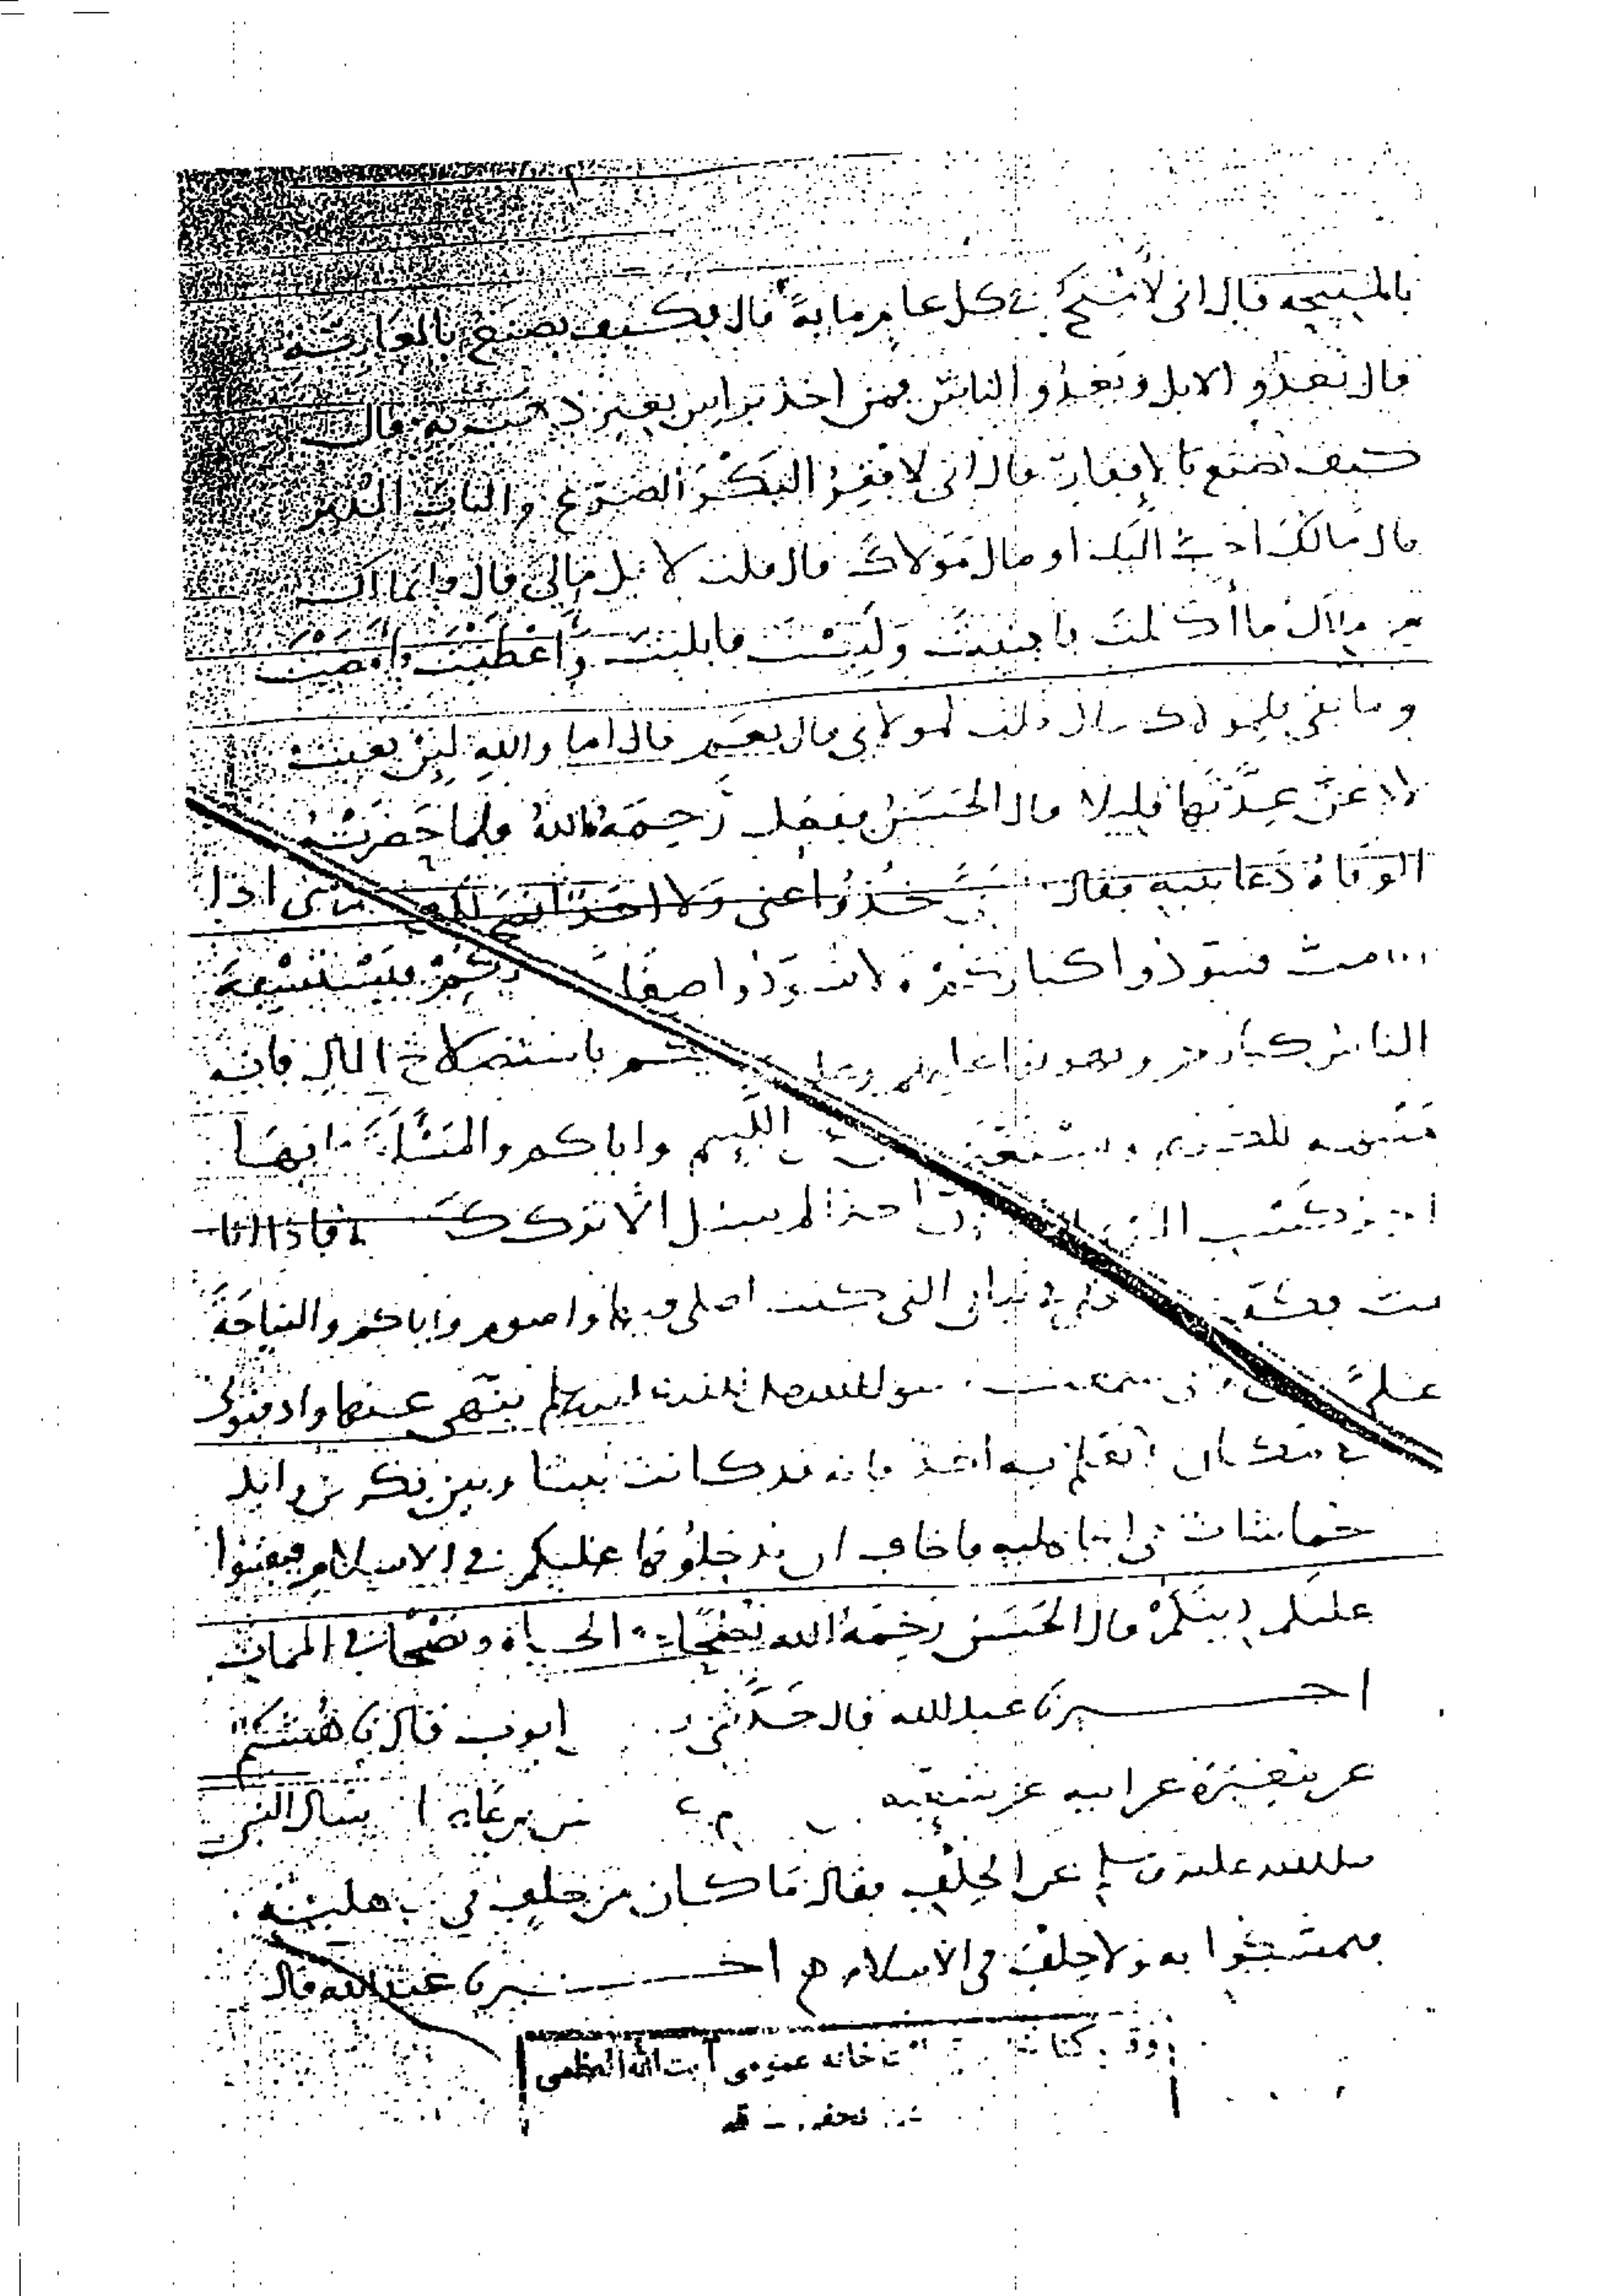 بالمنيحه قال انى لأمنح فى كل عام مايةً قال فكيف تصنع بالعارية
قال تغدو الابل ويغدو الناس فمن اخذ براس بعير ذهب به قال
كيف تصنع بالإفقار قال انى لافقر البكر الضرع والناب المدبر
قال مالك احب اليك او مال مولاك قال قلت لا بل مالى قال وانما لك
من مالك ما أكلت فافنيت ولبست فابليت وأعطيت فأمضيت
وما بقى فلمولاك قال قلت لمولاى قال نعم قال اما والله لين بقيت
لادعن عدتها قليلا قال الحسن ففعل رحمه الله فلما حضرته
الوفاة دعا بنيه فقال يا بنى خذوا عنى ولا احد انصح لكم منى اذا
انا مت فسودوا كباركم ولا تسودوا صغاركم فيستسفه
الناس كباركم وتهونوا عليهم وعليكم باستصلاح المال فانه
منبهه للكريم ويستغنى به عن اللييم واياكم والمسئلة فانها
اخر كسب المرء ان احدا لم يسئل الا ترك كسبه فاذا انا
مت فكفنونى فى ثيابى التى كنت اصلى فيها واصوم واياكم والنياحة
علىّ فانى سمعت رسول الله صلى الله عليه وسلم ينهى عنها وادفنونى
فى مكان لا يعلم به احد فانه قد كانت بيننا وبين بكر بن وايل
خماشات فى الجاهليه فاخاف ان يدخلوها عليكم فى الاسلام فيعيبوا
عليكم دينكم قال الحسن رحمه الله نصحًا فى الحياة ونصحًا فى الممات
اخبرنا عبد الله قال حدثنى ايوب قال نا هشيم
عن مغيرة عن ابيه عن شعبه بن عاصم سال النبى
صلى الله عليه وسلم عن الحلف فقال ما كان من حلف فى الجاهلية
فتمسكوا به ولا حلف فى الاسلام ه اخبرنا عبد الله قال
خانه عمومى آيت الله العظمى
نجفى - قم